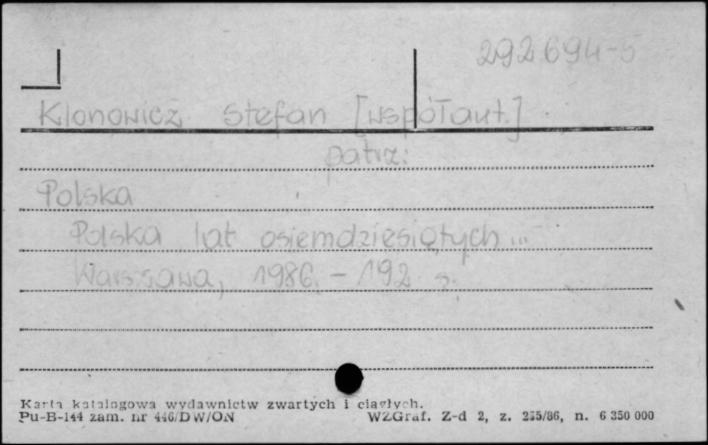 292694-5
Klonowicz Stefan [współaut.]
patrz:
Polska
Polska lat osiemdziesiątych...
Warszawa, 1986. - 192 s.
Karta katalogowa wydawnictw zwartych i ciągłych.
Pu-B-144 zam. nr 446/DW/ON WZGraf. Z-d 2, z. 235/86, n. 6 350 000